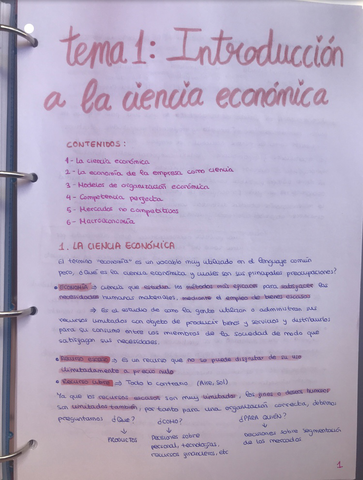 tema 1: Introducción
a la ciencia económica
CONTENIDOS:
1- La ciencia económica
2- La economía de la empresa como ciencia
3- Modelos de organización económica
4- Competencia perfecta
5- Mercados no competitivos
6- Macroeconomía
1. LA CIENCIA ECONÓMICA
El término "economía" es un vocablo muy utilizado en el lenguaje común
pero, ¿Qué es la ciencia económica, y cuáles son sus principales preocupaciones?
• Economía → ciencia que estudia los métodos más eficaces para satisfacer las
necesidades humanas materiales, mediante el empleo de bienes escasos
⇒ Es el estudio de como la gente utilizan o administran sus
recursos limitados con objeto de producir bienes y servicios y distribuirlos
para su consumo entre los miembros de la sociedad de modo que
satisfagan sus necesidades.
→ es un recurso que no se puede disponer de su uso
ilimitadamente a precio nulo
→ Todo lo contrario. (Aire, sol)
Ya que los recursos escasos son muy limitados, los fines o deseos humanos
son ilimitados también, por tanto para una organización correcta, debemos
preguntarnos ¿Qué? ¿CÓMO? ¿PARA QUIÉN?
↓ ↓ ↓
PRODUCTOS Decisiones sobre Decisiones sobre segmentación
personal, tecnologías, de los mercados
recursos financieros, etc
1